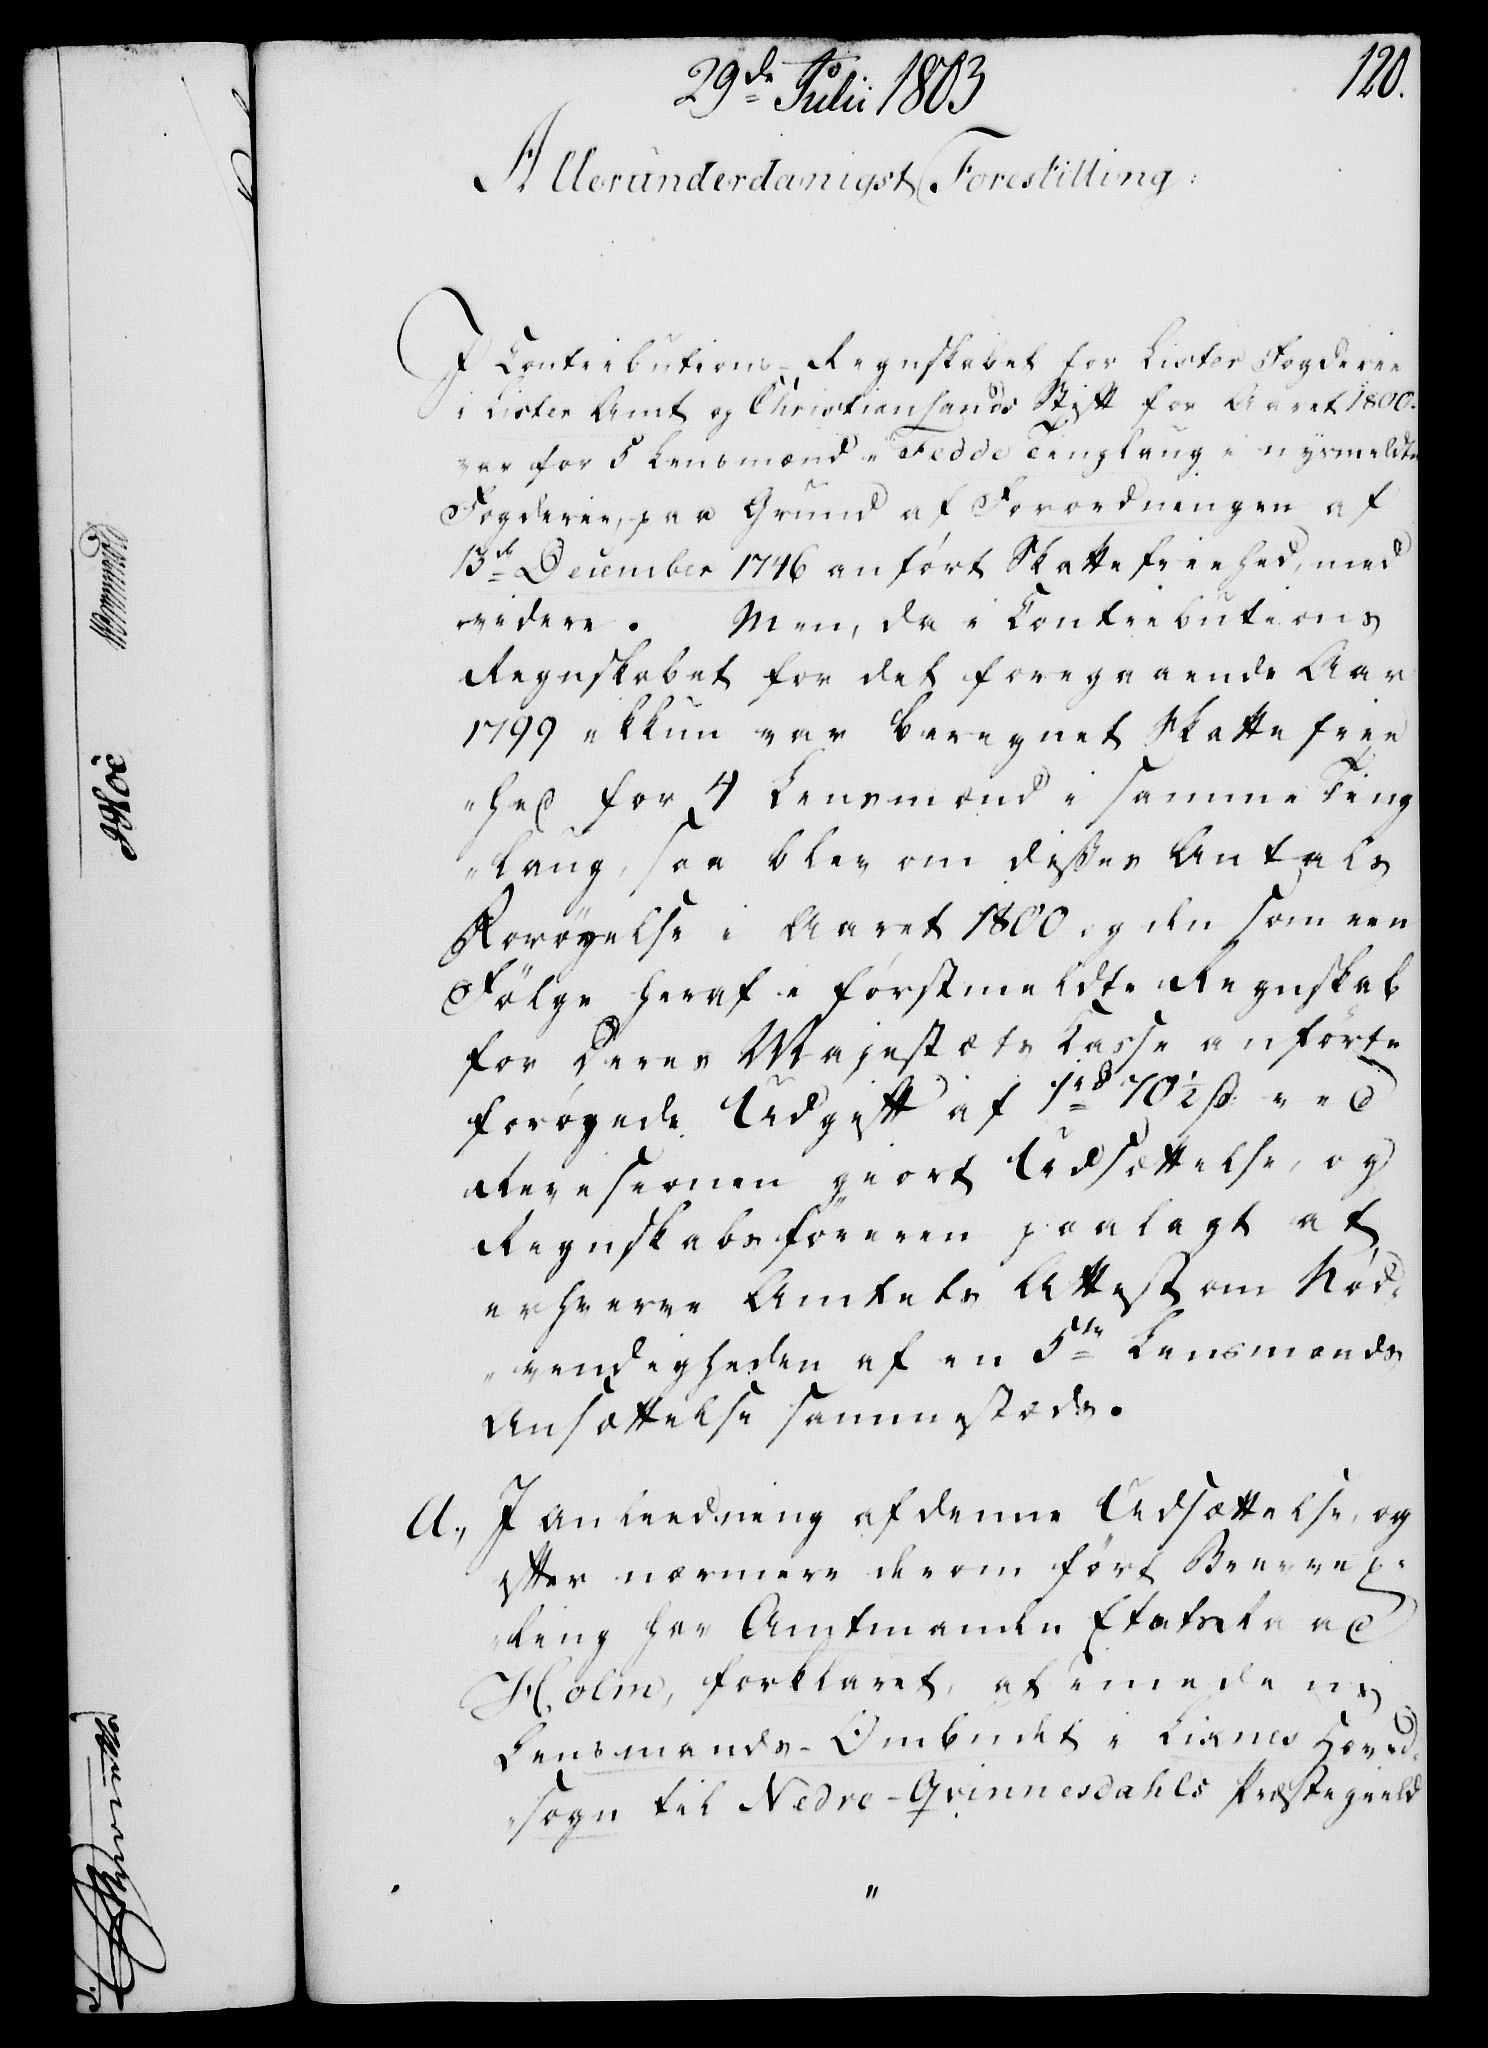 29de Julii 1803
120.
Allerunderdanigst Forestilling:
I Contributions-Regnskabet for Lister Fogderie
i Lister Amt og Christiansands Stift for Aaret 1800.
var for 5 Lensmænd i Fedde Tinglaug i nysmeldte
Fogderie, paa Grund af Forordningen af
13de December 1746 anført Skattefriehed, med
videre. Men, da i Contributions
Regnskabet for det foregaaende Aar
1799 ikkun var beregnet Skattefrie
"hed for 4 Lensmænd i samme Ting
"laug, saa blev om disses Antals
Forøyelse i Aaret 1800 og den som een
Følge heraf i førstmeldte Regnskab
for Deres Majestæts Casse anførte
forøgede Udgift af 1rd 70½ s ved
Revisionen giort Udsættelse, og
Regnskabsføreren paalagt at
erhverve Amtets Attest om Nød-
"vendigheden af en 5te Lensmands
Ansættelse sammestæds.
A., I Anleedning af denne Udsættelse, og
efter nærmere derom ført Brevvex-
"ling har Amtmanden Etatsraad
Holm, forklaret, at imedens
Lensmands-Ombudet i Liknes Hoved-
"sogn til Nedre-Qvinnesdahls Præstegield
"
Moe